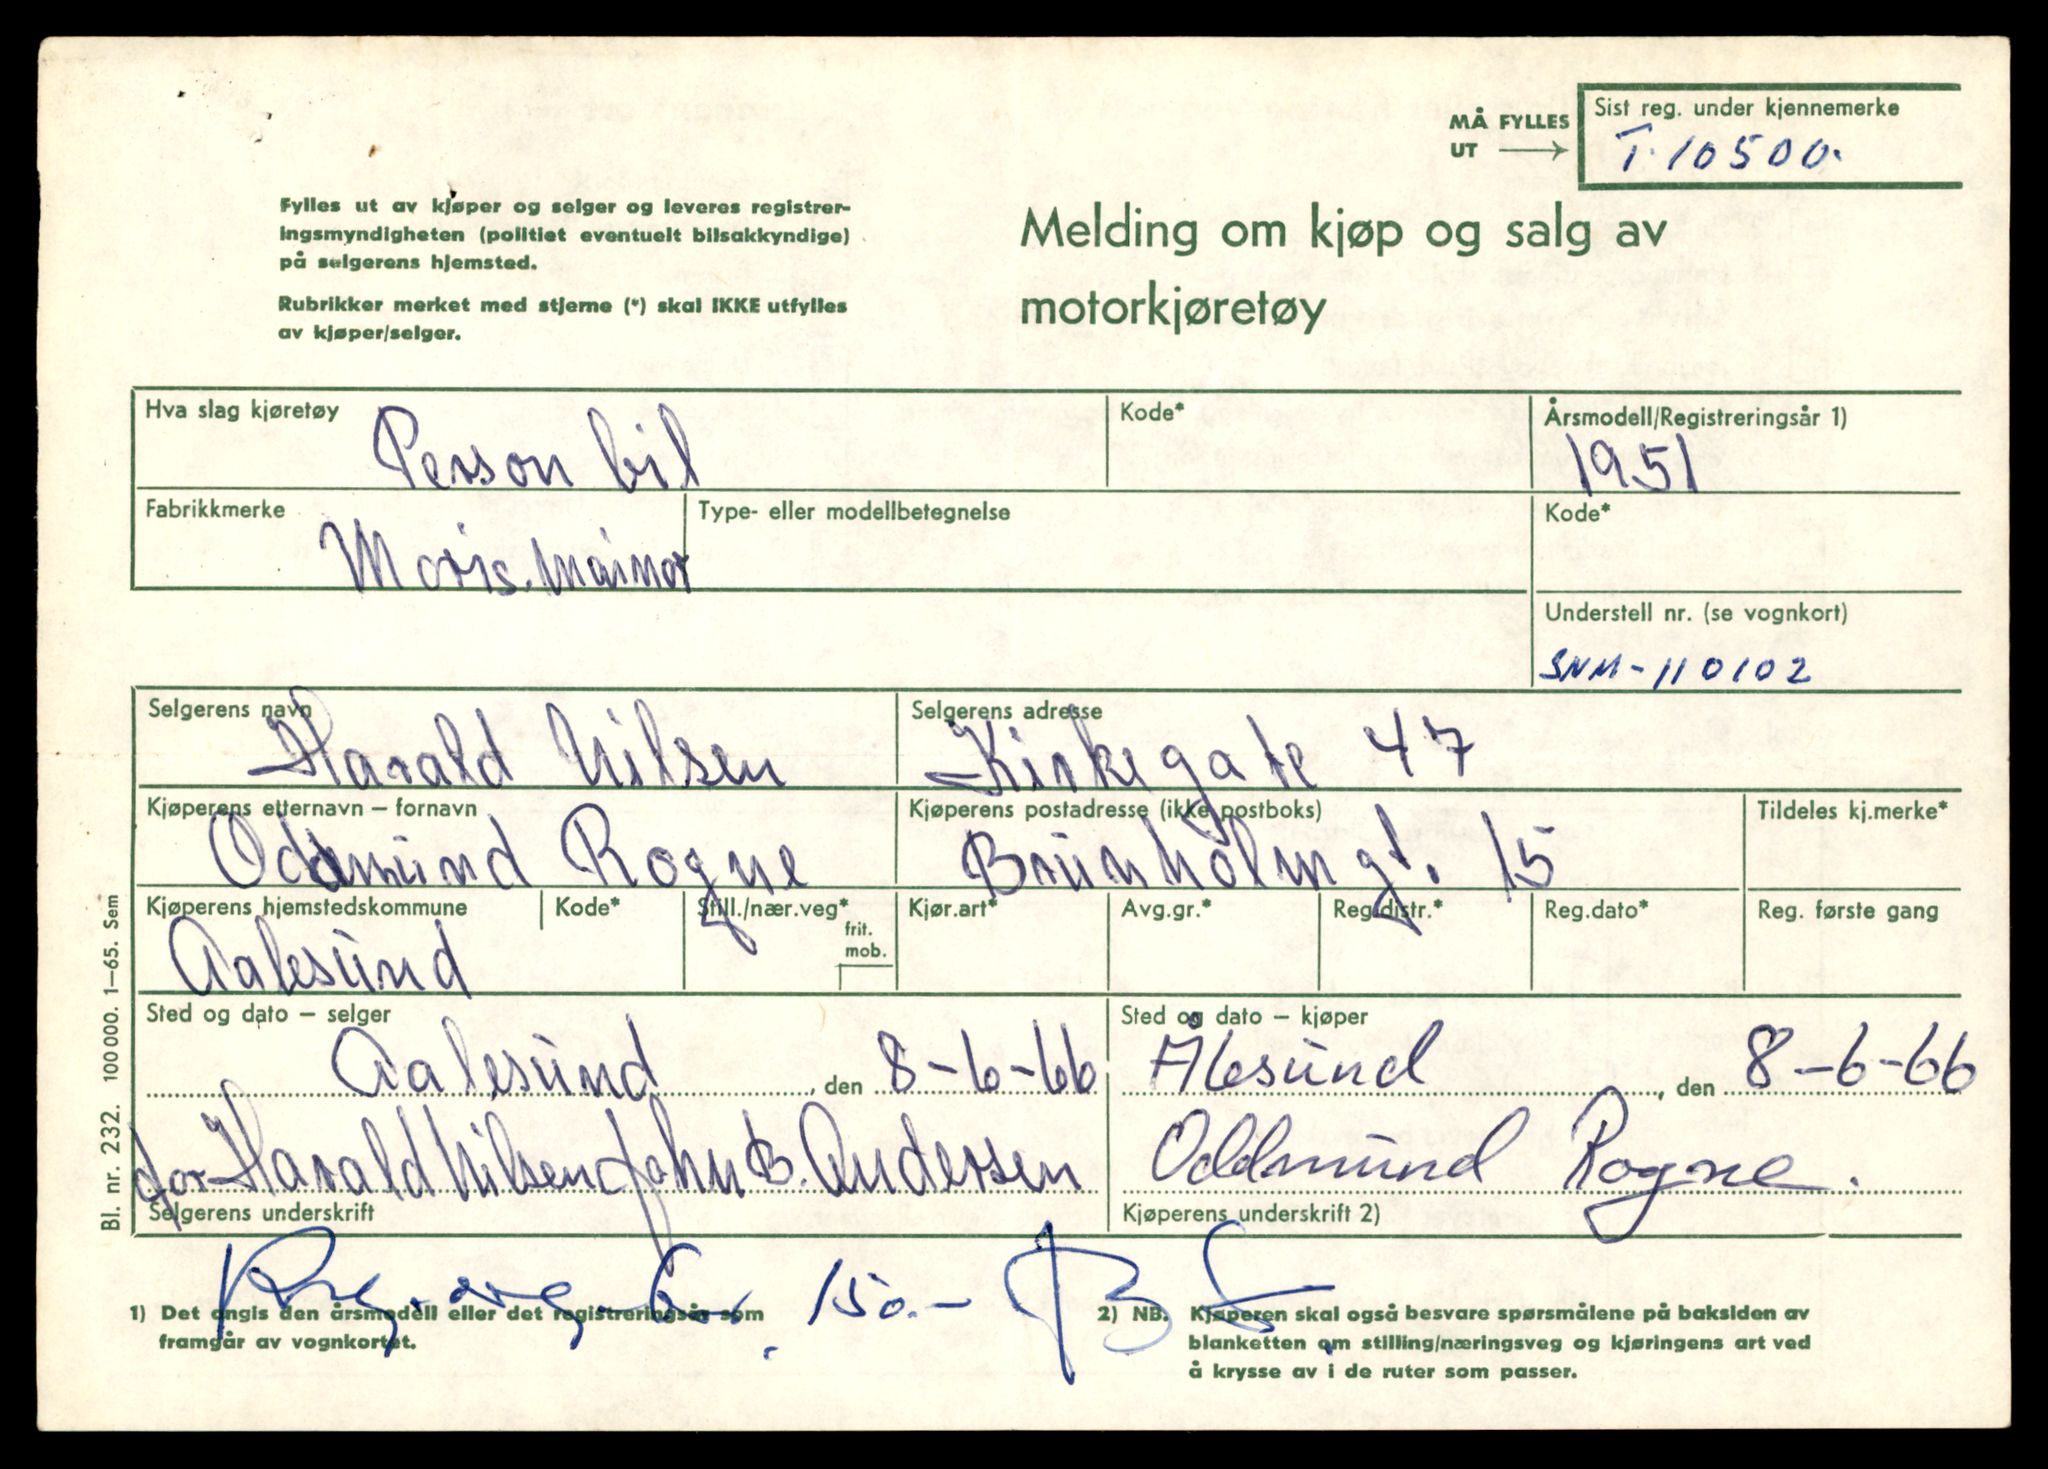 MÅ FYLLES
UT
Sist reg. under kjennemerke
T. 10500.
Fylles ut av kjøper og selger og leveres registrer-
ingsmyndigheten (politiet eventuelt bilsakkyndige)
på selgerens hjemsted.
Rubrikker merket med stjerne (*) skal IKKE utfylles
av kjøper/selger.
Melding om kjøp og salg av
motorkjøretøy
Hva slag kjøretøy
Person bil
Kode*
Årsmodell/Registreringsår 1)
1951
Fabrikkmerke
Moris. Mainor
Type- eller modellbetegnelse
Kode*
Understell nr. (se vognkort)
SNM-110102
Selgerens navn
Harald Nilsen
Selgerens adresse
Kirkegate 47
Kjøperens etternavn – fornavn
Oddmund Rogne
Kjøperens postadresse (ikke postboks)
Brunholmgt. 15
Tildeles kj.merke*
Kjøperens hjemstedskommune
Aalesund
Kode*
Still./nær.veg*
frit.
mob.
Kjør.art*
Avg.gr.*
Reg.distr.*
Reg.dato*
Reg. første gang
Sted og dato – selger
Aalesund, den 8-6-66
Sted og dato – kjøper
Ålesund, den 8-6-66
for Harald Nilsen John B. Andersen
Selgerens underskrift
Oddmund Rogne.
Kjøperens underskrift 2)
150.-
1) Det angis den årsmodell eller det registreringsår som
framgår av vognkortet.
2) NB. Kjøperen skal også besvare spørsmålene på baksiden av
blanketten om stilling/næringsveg og kjøringens art ved
å krysse av i de ruter som passer.
Bl. nr. 232. 100 000. 1–65. Sem